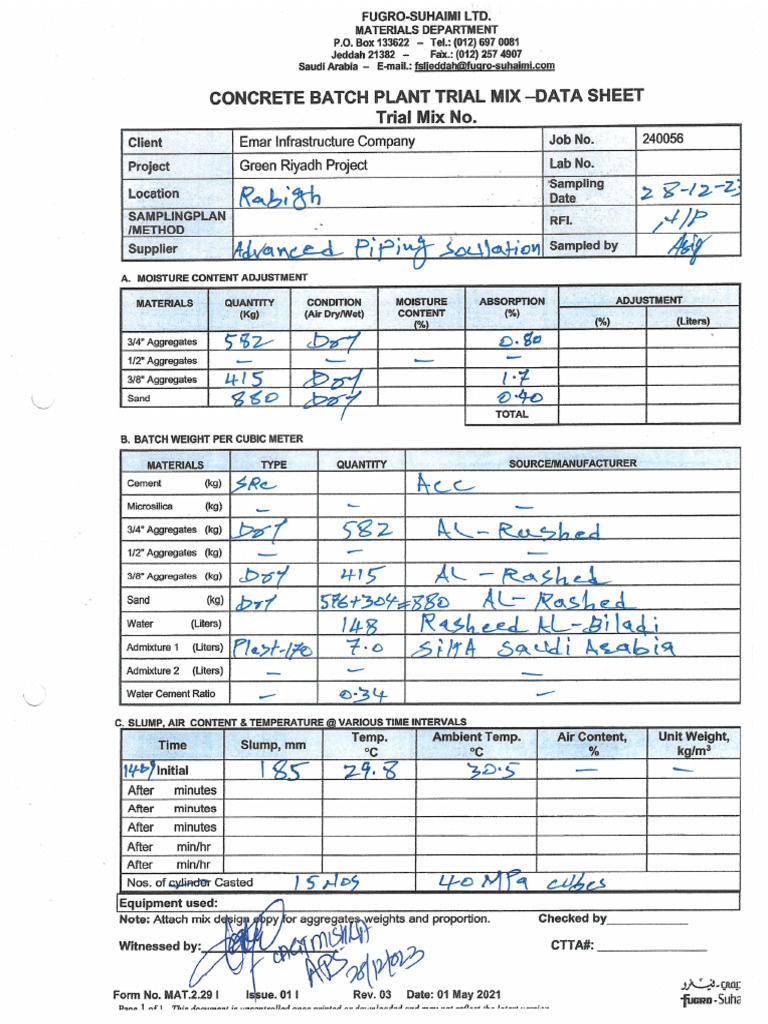 FUGRO-SUHAIMI LTD.
MATERIALS DEPARTMENT
P.O. Box 133622 – Tel.: (012) 697 0081
Jeddah 21382 – Fax.: (012) 257 4907
Saudi Arabia – E-mail.: fsljeddah@fugro-suhaimi.com
CONCRETE BATCH PLANT TRIAL MIX –DATA SHEET
Trial Mix No.
Client Emar Infrastructure Company Job No. 240056
Project Green Riyadh Project Lab No.
Location Rabigh Sampling Date 28-12-23
SAMPLINGPLAN /METHOD RFI.
Supplier Advanced Piping Soullation Sampled by
A. MOISTURE CONTENT ADJUSTMENT
MATERIALS QUANTITY (Kg) CONDITION (Air Dry/Wet) MOISTURE CONTENT (%) ABSORPTION (%) ADJUSTMENT
(%) (Liters)
3/4" Aggregates 582 Dry 0.80
1/2" Aggregates — — — —
3/8" Aggregates 415 Dry 1.7
Sand 880 Dry 0.40
TOTAL
B. BATCH WEIGHT PER CUBIC METER
MATERIALS TYPE QUANTITY SOURCE/MANUFACTURER
Cement (kg) SRC ACC
Microsilica (kg) — — —
3/4" Aggregates (kg) Dry 582 AL-Rashed
1/2" Aggregates (kg) — — —
3/8" Aggregates (kg) Dry 415 AL-Rashed
Sand (kg) Dry 576+304=880 AL-Rashed
Water (Liters) 148 Rasheed AL-Biladi
Admixture 1 (Liters) Plast-170 7.0 SiKA Saudi Arabia
Admixture 2 (Liters) — — —
Water Cement Ratio — 0.34 —
C. SLUMP, AIR CONTENT & TEMPERATURE @ VARIOUS TIME INTERVALS
Time Slump, mm Temp. °C Ambient Temp. °C Air Content, % Unit Weight, kg/m³
Initial 185 29.8 30.5 — —
After minutes
After minutes
After minutes
After min/hr
After min/hr
Nos. of cylinder Casted 15 Nos 40 MPa cubes
Equipment used:
Note: Attach mix design copy for aggregates weights and proportion. Checked by
Witnessed by: CTTA#:
APS
28/12/023
Form No. MAT.2.29 I Issue. 01 I Rev. 03 Date: 01 May 2021
Page 1 of 1 This document is uncontrolled once printed or downloaded and may not reflect the latest version